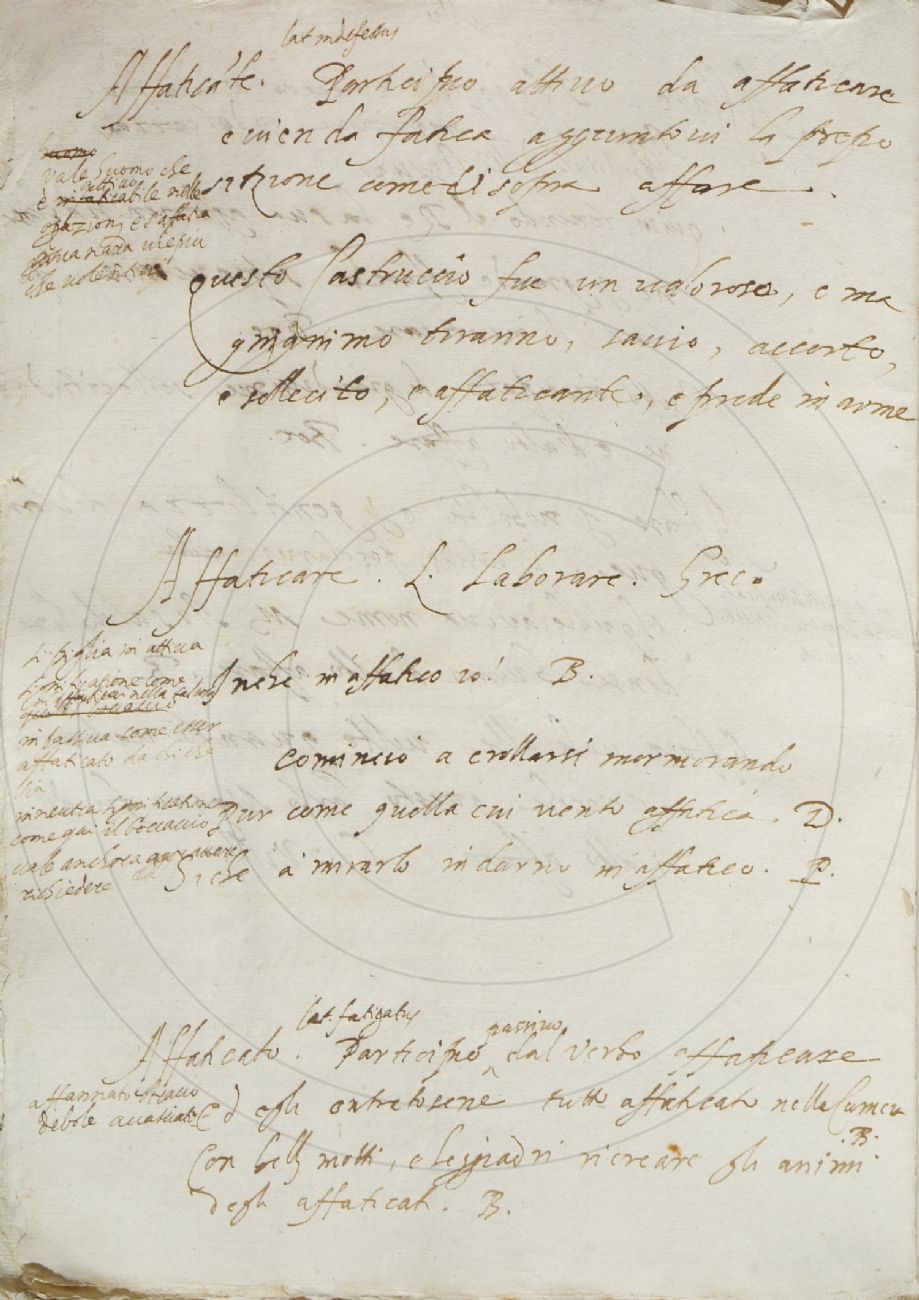 lat indefessus
Affaticãte. Participio attivo da affaticare
e vien da fatica aggiuntovi la prepo
sitzione come di sopra affare.
vale huomo che
è attivo nelle
che volentieri
Questo Castruccio fue un valoroso, e ma
gnianimo tiranno, savio, accorto,
e sollecito, e affaticante, e prode in arme
Affaticare. L. Laborare. Grec.
Si piglia in attiva
significatione come
affaticato da chi che
sia
in neutra significatione
come qui il Boccaccio
vale anchora
richiedere
In che m'affatico io! B.
Cominciò a crollarsi mormorando
Pur come quella cui vento affatica. D.
Si che à mirarlo indarno m'affatico. P.
lat. fatigatus
Affaticato. Participio passivo dal verbo affaticare
affannato stracco
debole
Ed egli entratosene tutto affaticato nella Camera
B.
Con belli motti, e leggiadri ricreare gli animi
degli affaticati. B.